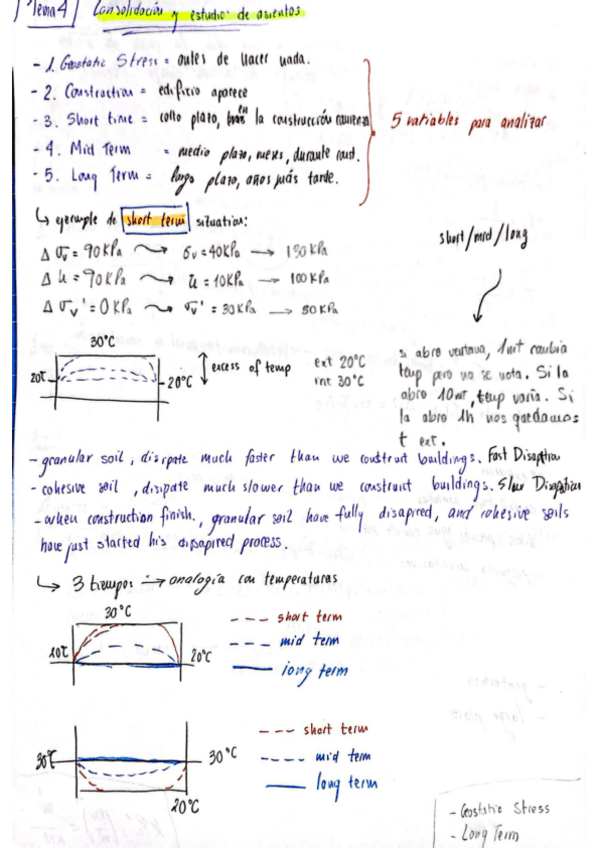 Tema 4 Consolidación y estudio de asientos
- 1. Geostatic Stress = antes de hacer nada.
- 2. Construction = edificio aparece
- 3. Short time = corto plazo, en la construcción
- 4. Mid Term = medio plazo, meses, durante const.
- 5. Long Term = largo plazo, años más tarde.
5 variables para analizar
↳ ejemplo de short term situation:
Δσv = 90KPa → σv = 40KPa → 130 KPa
Δu = 90KPa → u = 10KPa → 100 KPa
Δσv' = 0KPa → σv' = 30KPa → 30 KPa
short/mid/long
si abro ventana, 1mt cambia
temp pero no se nota. Si la
abro 10mt, temp varía. Si
la abro 1h nos quedamos
t ext.
30°C
20°C
20°C
excess of temp
ext 20°C
int 30°C
- granular soil, disipate much faster than we construit buildings. Fast Disipation
- cohesive soil, disipate much slower than we construint buildings. Slow Disipation
- when construction finish., granular soil have fully disapired, and cohesive soils
have just started his disapired process.
↳ 3 tiempos → analogía con temperaturas
30°C
20°C
20°C
--- short term
--- mid term
— long term
30°C
30°C
20°C
--- short term
--- mid term
— long term
- Geostatic Stress
- Long Term